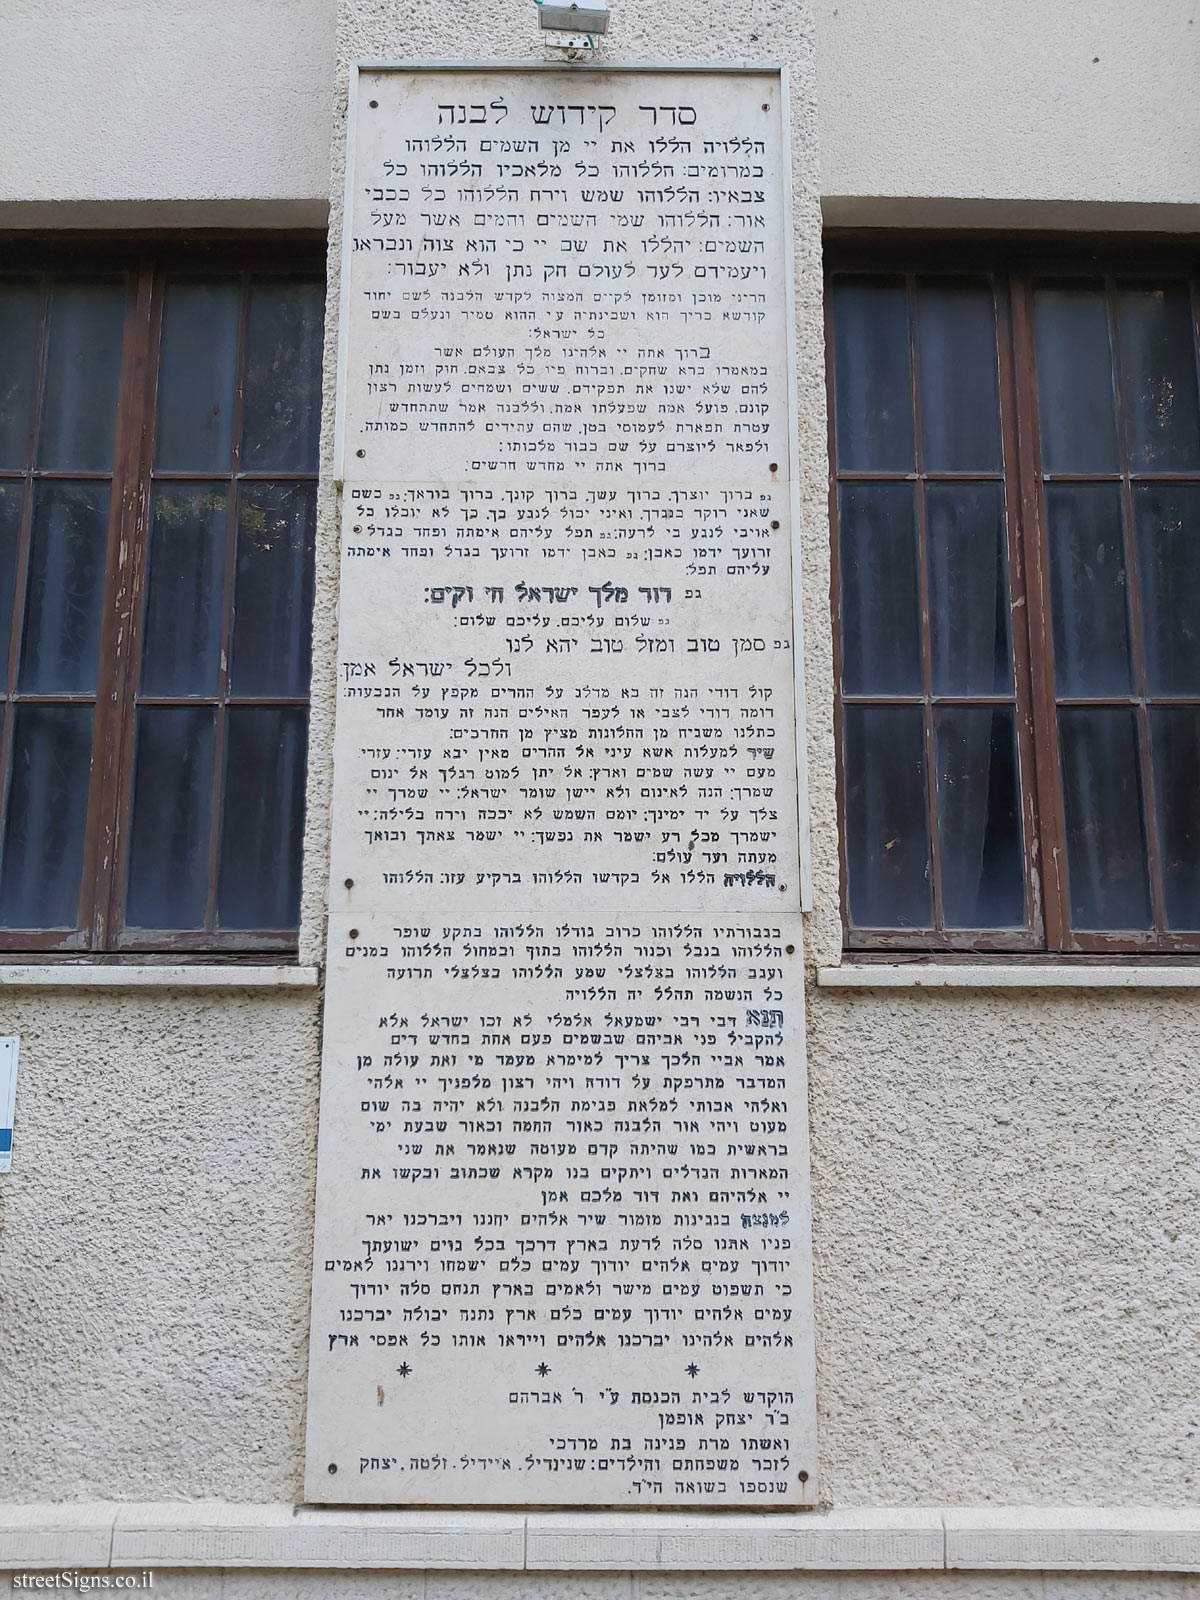 סדר קידוש לבנה
הללויה הללו את יי מן השמים הללוהו
במרומים: הללוהו כל מלאכיו הללוהו כל
צבאיו: הללוהו שמש וירח הללוהו כל ככבי
אור: הללוהו שמי השמים והמים אשר מעל
השמים: יהללו את שם יי כי הוא צוה ונבראו
ויעמידם לעד לעולם חק נתן ולא יעבור:
הריני מוכן ומזומן לקיים המצוה לקדש הלבנה לשם יחוד
קודשא בריך הוא ושכינתיה ע״י ההוא טמיר ונעלם בשם
כל ישראל:
ברוך אתה יי אלהינו מלך העולם אשר
במאמרו ברא שחקים. וברוח פיו כל צבאם. חוק וזמן נתן
להם שלא ישנו את תפקידם. ששים ושמחים לעשות רצון
קונם. פועל אמת שפעלתו אמת. וללבנה אמר שתתחדש
עטרת תפארת לעמוסי בטן. שהם עתידים להתחדש כמותה.
ולפאר ליוצרם על שם כבוד מלכותו:
ברוך אתה יי מחדש חדשים:
גפ ברוך יוצרך. ברוך עשך. ברוך קונך. ברוך בוראך: גפ כשם
שאני רוקד כנגדך. ואיני יכול לנגע בך. כך לא יוכלו כל
אויבי לנגע בי לרעה: גפ תפל עליהם אימתה ופחד בגדל
זרועך ידמו כאבן: גפ כאבן ידמו זרועך בגדל ופחד אימתה
עליהם תפל:
גפ דוד מלך ישראל חי וקים:
גפ שלום עליכם. עליכם שלום:
גפ סמן טוב ומזל טוב יהא לנו
ולכל ישראל אמן.
קול דודי הנה זה בא מדלג על ההרים מקפץ על הגבעות:
דומה דודי לצבי או לעפר האילים הנה זה עומד אחר
כתלנו משגיח מן החלונות מציץ מן החרכים:
שיר למעלות אשא עיני אל ההרים מאין יבא עזרי: עזרי
מעם יי עשה שמים וארץ: אל יתן למוט רגלך אל ינום
שמרך: הנה לא ינום ולא יישן שומר ישראל: יי שמרך יי
צלך על יד ימינך: יומם השמש לא יככה וירח בלילה: יי
ישמרך מכל רע ישמר את נפשך: יי ישמר צאתך ובואך
מעתה ועד עולם:
הללויה הללו אל בקדשו הללוהו ברקיע עזו: הללוהו
בגבורתיו הללוהו כרוב גודלו הללוהו בתקע שופר
הללוהו בנבל וכנור הללוהו בתוף ובמחול הללוהו במנים
ועגב הללוהו בצלצלי שמע הללוהו בצלצלי תרועה
כל הנשמה תהלל יה הללויה
תנא דבי רבי ישמעאל אלמלי לא זכו ישראל אלא
להקביל פני אביהם שבשמים פעם אחת בחדש דים
אמר אביי הלכך צריך למימרא מעמד מי זאת עולה מן
המדבר מתרפקת על דודה ויהי רצון מלפניך יי אלהי
ואלהי אבותי למלאת פגימת הלבנה ולא יהיה בה שום
מעוט ויהי אור הלבנה כאור החמה וכאור שבעת ימי
בראשית כמו שהיתה קדם מעוטה שנאמר את שני
המארות הגדלים ויתקים בנו מקרא שכתוב ובקשו את
יי אלהיהם ואת דוד מלכם אמן
למנצח בנגינות מזמור שיר אלהים יחננו ויברכנו יאר
פניו אתנו סלה לדעת בארץ דרכך בכל גוים ישועתך
יודוך עמים אלהים יודוך עמים כלם ישמחו וירננו לאמים
כי תשפוט עמים מישר ולאמים בארץ תנחם סלה יודוך
עמים אלהים יודוך עמים כלם ארץ נתנה יבולה יברכנו
אלהים אלהינו יברכנו אלהים וייראו אותו כל אפסי ארץ
הוקדש לבית הכנסת ע״י ר׳ אברהם
ב״ר יצחק אופמן
ואשתו מרת פנינה בת מרדכי
לזכר משפחתם והילדים: שיינדיל. איידיל. זלטה. יצחק
שנספו בשואה הי״ד.
streetSigns.co.il